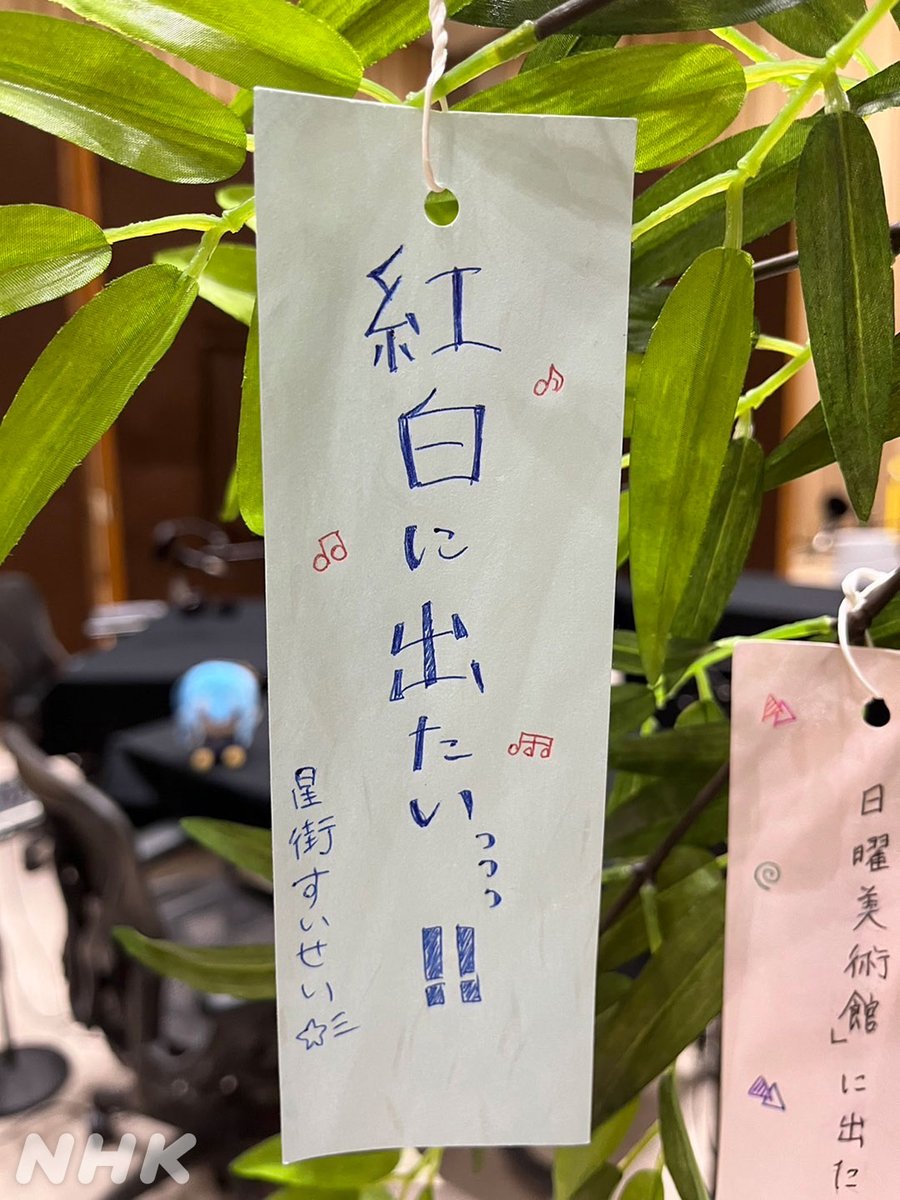 紅白に出たいっっっ!!
星街すいせい☆彡
日曜美術館」に出た
NHK